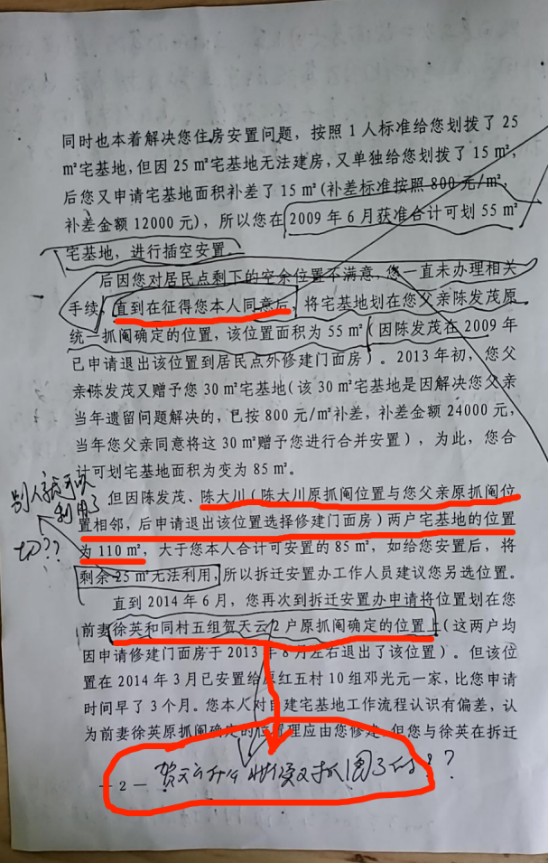 同时也本着解决您住房安置问题，按照1人标准给您划拨了25
㎡宅基地，但因25㎡宅基地无法建房，又单独给您划拨了15㎡，
后您又申请宅基地面积补差了15㎡(补差标准按照800元/㎡，
补差金额12000元)，所以您在2009年6月获准合计可划55㎡
宅基地，进行插空安置。
后因您对居民点剩下的空余位置不满意，您一直未办理相关
手续，直到在征得您本人同意后，将宅基地划在您父亲陈发茂原
统一抓阄确定的位置，该位置面积为55㎡(因陈发茂在2009年
已申请退出该位置到居民点外修建门面房)。2013年初，您父
亲陈发茂又赠予您30㎡宅基地(该30㎡宅基地是因解决您父亲
当年遗留问题解决的，已按800元/㎡补差，补差金额24000元，
当年您父亲同意将这30㎡赠予您进行合并安置)，为此，您合
计可划宅基地面积为变为85㎡。
但因陈发茂、陈大川(陈大川原抓阄位置与您父亲原抓阄位
置相邻，后申请退出该位置选择修建门面房)两户宅基地的位置
为110㎡，大于您本人合计可安置的85㎡，如给您安置后，将
剩余25㎡无法利用，所以拆迁安置办工作人员建议您另选位置。
直到2014年6月，您再次到拆迁安置办申请将位置划在您
前妻徐英和同村五组贺天云2户原抓阄确定的位置上(这两户均
因申请修建门面房于2013年8月左右退出了该位置)。但该位
置在2014年3月已安置给原红五村10组邓光元一家，比您申请
时间早了3个月。您本人对自建宅基地工作流程认识有偏差，认
为前妻徐英原抓阄确定的位置理应由您修建，但您与徐英在拆迁
— 2 —
别人就可以
利用了
??